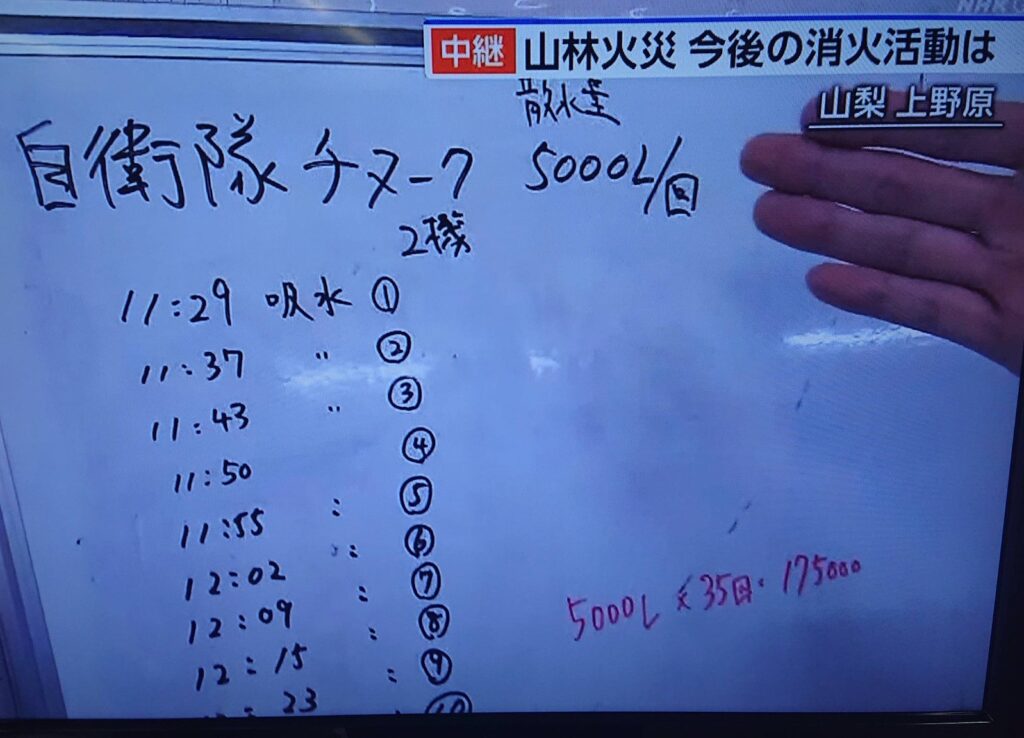 NHK G
中継 山林火災 今後の消火活動は
山梨 上野原
散水量
自衛隊 チヌーク 5000L/回
2機
11:29 吸水 ①
11:37 〃 ②
11:43 〃 ③
11:50 ④
11:55 : ⑤
12:02 : ⑥
12:09 : ⑦
12:15 : ⑧
23 : ⑨
⑩
5000L × 35回・175000